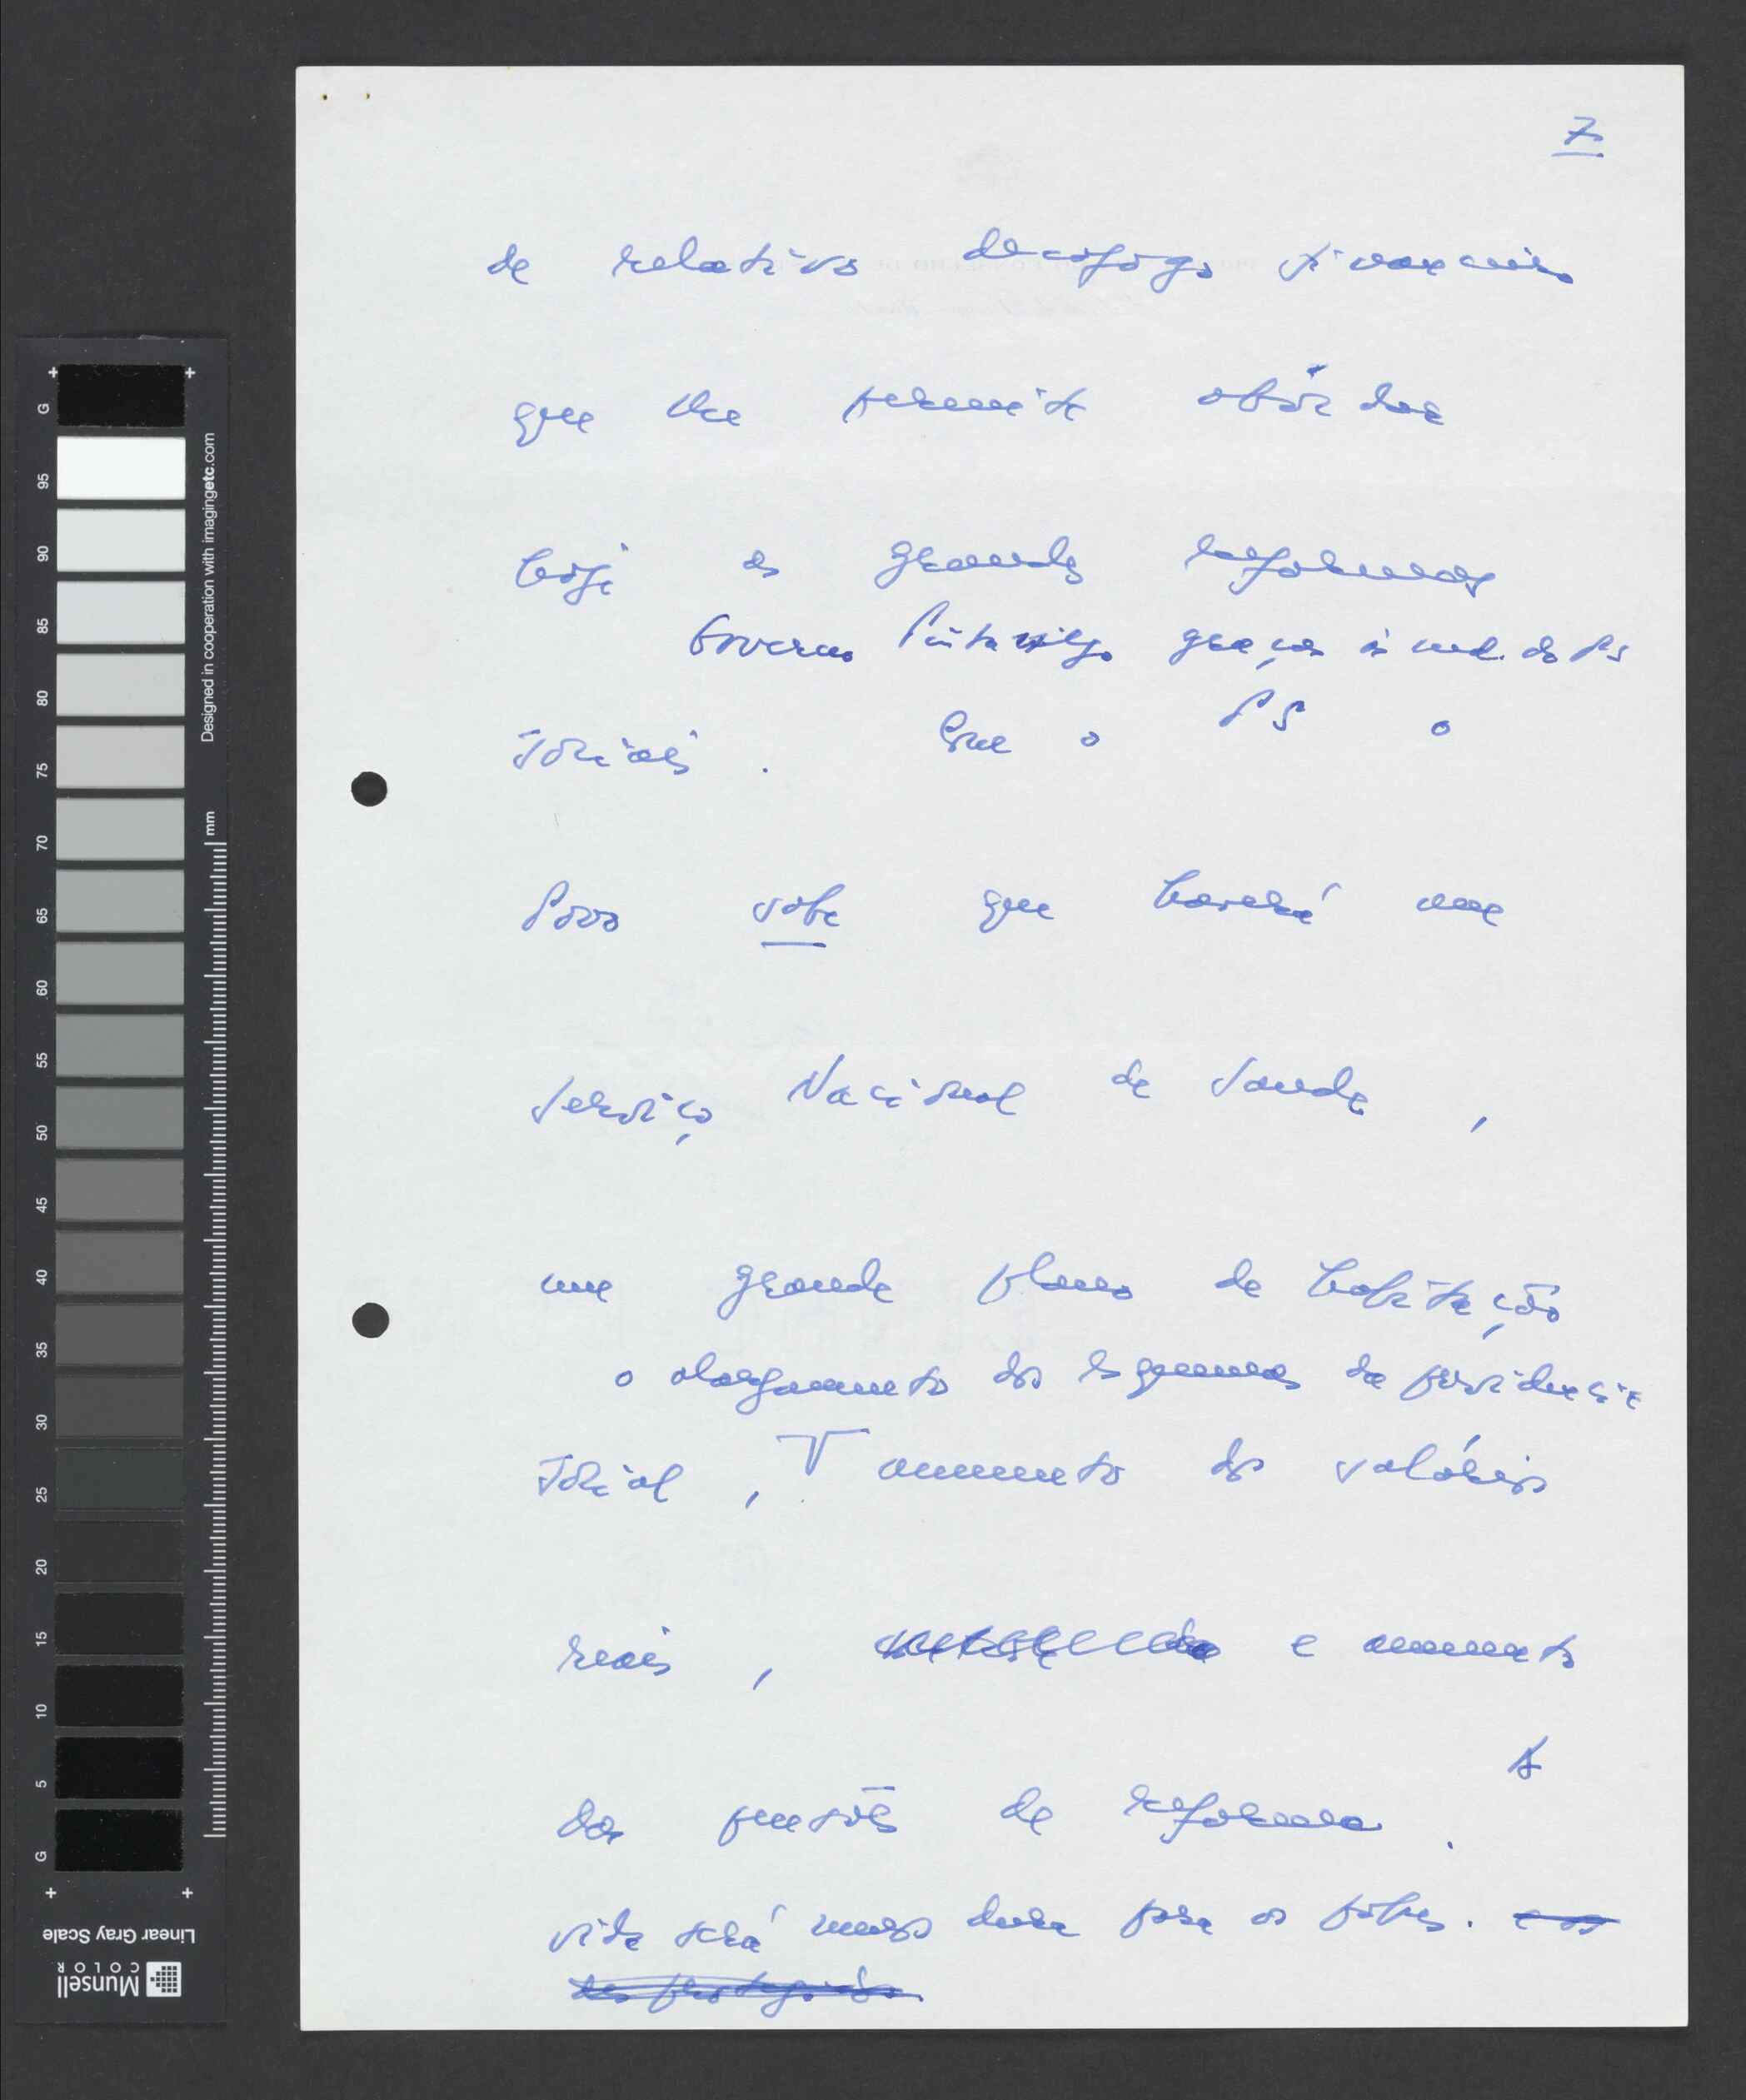 7
de relativo desafogo financeiro
que lhe permite abordar
hoje as grandes reformas
Governo graças à do PS
sociais. Que o PS o
Povo sabe que haverá um
Serviço Nacional de Saude,
um grande plano de habitação
o alargamento dos esquemas de previdencia
social, aumento dos salários
reais, e aumento
das pensões de reforma. A
vida será menos dura para os pobres. e os
desprotegidos.
G
95
90
85
80
75
70
65
60
55
50
45
40
35
30
25
20
15
10
5
G
mm
Designed in cooperation with imagingetc.com
Linear Gray Scale
Munsell
COLOR